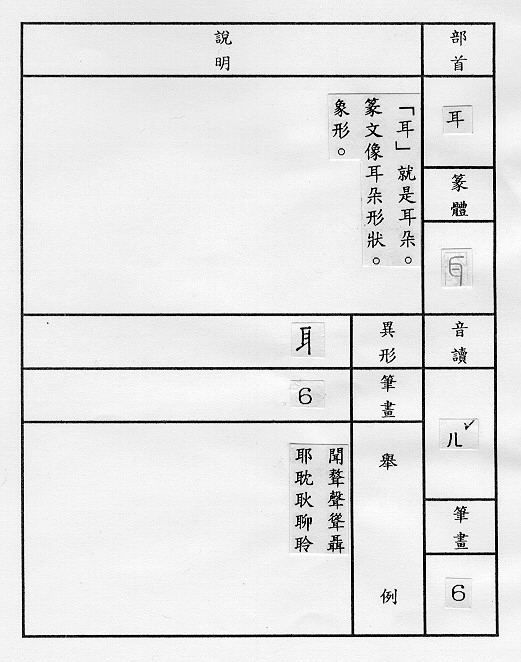 部首
耳
篆體
音讀
ㄦˇ
筆畫
6
說明
「耳」就是耳朵。
篆文像耳朵形狀。
象形。
異形
耳
筆畫
6
舉例
聞聱聲聳聶
耶耽耿聊聆